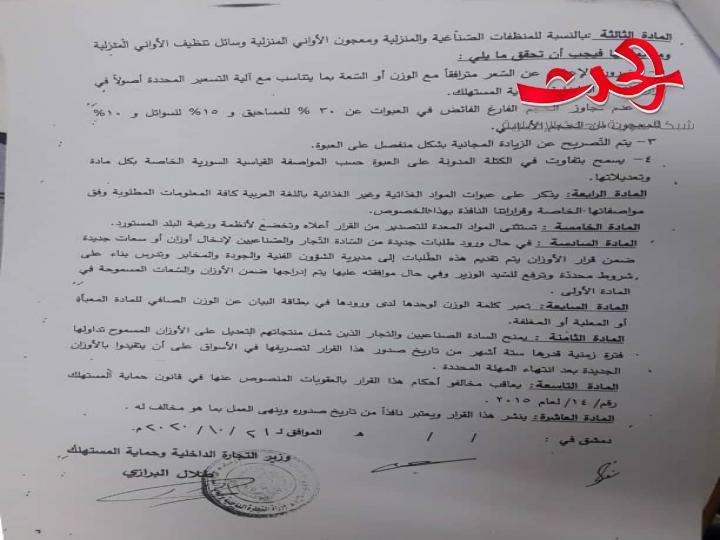 المادة الثالثة :بالنسبة للمنظفات الصناعية والمنزلية ومعجون الأواني المنزلية وسائل تنظيف الأواني المنزلية
فيجب أن تحقق ما يلي :
عن السعر مترافقاً مع الوزن أو السعة بما يتناسب مع آلية التسعير المحددة أصولاً في
المستهلك.
عدم تجاوز الفارغ الفائض في العبوات عن ٣٠ % للمساحيق و ١٥% للسوائل و ١٠%
٣- يتم التصريح عن الزيادة المجانية بشكل منفصل على العبوة.
٤- يسمح بتفاوت في الكتلة المدونة على العبوة حسب المواصفة القياسية السورية الخاصة بكل مادة
وتعديلاتها.
المادة الرابعة: يذكر على عبوات المواد الغذائية وغير الغذائية باللغة العربية كافة المعلومات المطلوبة وفق
مواصفاتها الخاصة وقراراتنا النافذة بهذا الخصوص.
المادة الخامسة : تستثنى المواد المعدة للتصدير من القرار أعلاه وتخضع لأنظمة ورغبة البلد المستورد.
المادة السادسة : في حال ورود طلبات جديدة من السادة التجار والصناعيين لإدخال أوزان أو سعات جديدة
ضمن قرار الأوزان يتم تقديم هذه الطلبات إلى مديرية الشؤون الفنية والجودة والمخابر وتدرس بناء على
شروط محددة وترفع للسيد الوزير وفي حال موافقته عليها يتم إدراجها ضمن الأوزان والسعات المسموحة في
المادة الأولى .
المادة السابعة: تعبر كلمة الوزن لوحدها لدى ورودها في بطاقة البيان عن الوزن الصافي للمادة المعبأة
أو المعلبة أو المغلفة.
المادة الثامنة : يمنح السادة الصناعيين والتجار الذين شمل منتجاتهم التعديل على الأوزان المسموح تداولها
فترة زمنية قدرها ستة أشهر من تاريخ صدور هذا القرار لتصريفها في الأسواق على أن يتقيدوا بالأوزان
الجديدة بعد انتهاء المهلة المحددة .
المادة التاسعة: يعاقب مخالفو أحكام هذا القرار بالعقوبات المنصوص عنها في قانون حماية المستهلك
رقم/ ١٤/ لعام ٢٠١٥ .
المادة العاشرة: ينشر هذا القرار ويعتبر نافذاً من تاريخ صدوره وينهى العمل بما هو مخالف له .
دمشق في : / / هـ الموافق لـ ٢١ / ١٠ / ٢٠٢٠م.
وزير التجارة الداخلية وحماية المستهلك
طلال البرازي
الحدث